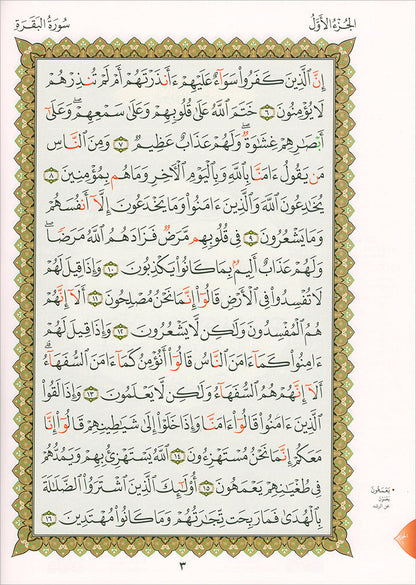 الجزء الأول
سورة البقرة
إِنَّ ٱلَّذِينَ كَفَرُوا۟ سَوَآءٌ عَلَيْهِمْ ءَأَنذَرْتَهُمْ أَمْ لَمْ تُنذِرْهُمْ
لَا يُؤْمِنُونَ ٦ خَتَمَ ٱللَّهُ عَلَىٰ قُلُوبِهِمْ وَعَلَىٰ سَمْعِهِمْ ۖ وَعَلَىٰٓ
أَبْصَٰرِهِمْ غِشَٰوَةٌ ۖ وَلَهُمْ عَذَابٌ عَظِيمٌ ٧ وَمِنَ ٱلنَّاسِ
مَن يَقُولُ ءَامَنَّا بِٱللَّهِ وَبِٱلْيَوْمِ ٱلْءَاخِرِ وَمَا هُم بِمُؤْمِنِينَ ٨
يُخَٰدِعُونَ ٱللَّهَ وَٱلَّذِينَ ءَامَنُوا۟ وَمَا يَخْدَعُونَ إِلَّآ أَنفُسَهُمْ
وَمَا يَشْعُرُونَ ٩ فِى قُلُوبِهِم مَّرَضٌ فَزَادَهُمُ ٱللَّهُ مَرَضًا ۖ
وَلَهُمْ عَذَابٌ أَلِيمٌۢ بِمَا كَانُوا۟ يَكْذِبُونَ ١٠ وَإِذَا قِيلَ لَهُمْ
لَا تُفْسِدُوا۟ فِى ٱلْأَرْضِ قَالُوٓا۟ إِنَّمَا نَحْنُ مُصْلِحُونَ ١١ أَلَآ إِنَّهُمْ
هُمُ ٱلْمُفْسِدُونَ وَلَٰكِن لَّا يَشْعُرُونَ ١٢ وَإِذَا قِيلَ لَهُمْ
ءَامِنُوا۟ كَمَآ ءَامَنَ ٱلنَّاسُ قَالُوٓا۟ أَنُؤْمِنُ كَمَآ ءَامَنَ ٱلسُّفَهَآءُ ۗ
أَلَآ إِنَّهُمْ هُمُ ٱلسُّفَهَآءُ وَلَٰكِن لَّا يَعْلَمُونَ ١٣ وَإِذَا لَقُوا۟
ٱلَّذِينَ ءَامَنُوا۟ قَالُوٓا۟ ءَامَنَّا وَإِذَا خَلَوْا۟ إِلَىٰ شَيَٰطِينِهِمْ قَالُوٓا۟ إِنَّا
مَعَكُمْ إِنَّمَا نَحْنُ مُسْتَهْزِءُونَ ١٤ ٱللَّهُ يَسْتَهْزِئُ بِهِمْ وَيَمُدُّهُمْ
فِى طُغْيَٰنِهِمْ يَعْمَهُونَ ١٥ أُو۟لَٰٓئِكَ ٱلَّذِينَ ٱشْتَرَوُا۟ ٱلضَّلَٰلَةَ
بِٱلْهُدَىٰ فَمَا رَبِحَت تِّجَٰرَتُهُمْ وَمَا كَانُوا۟ مُهْتَدِينَ ١٦
• يَعْمَهُونَ
عن الرشد
٣